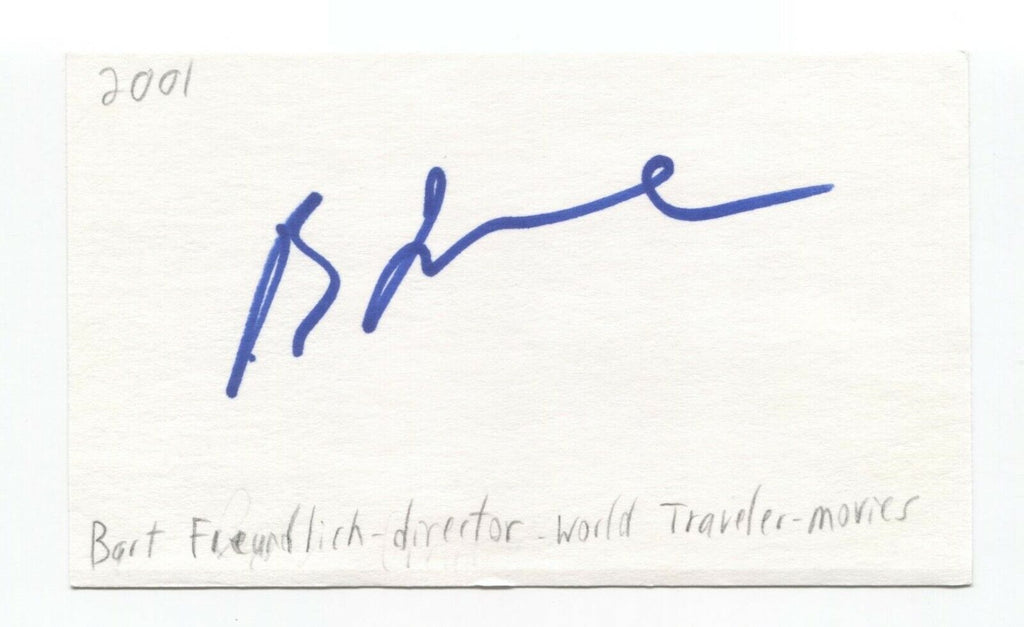 2001
Bart Freundlich-director-World Traveler-movies